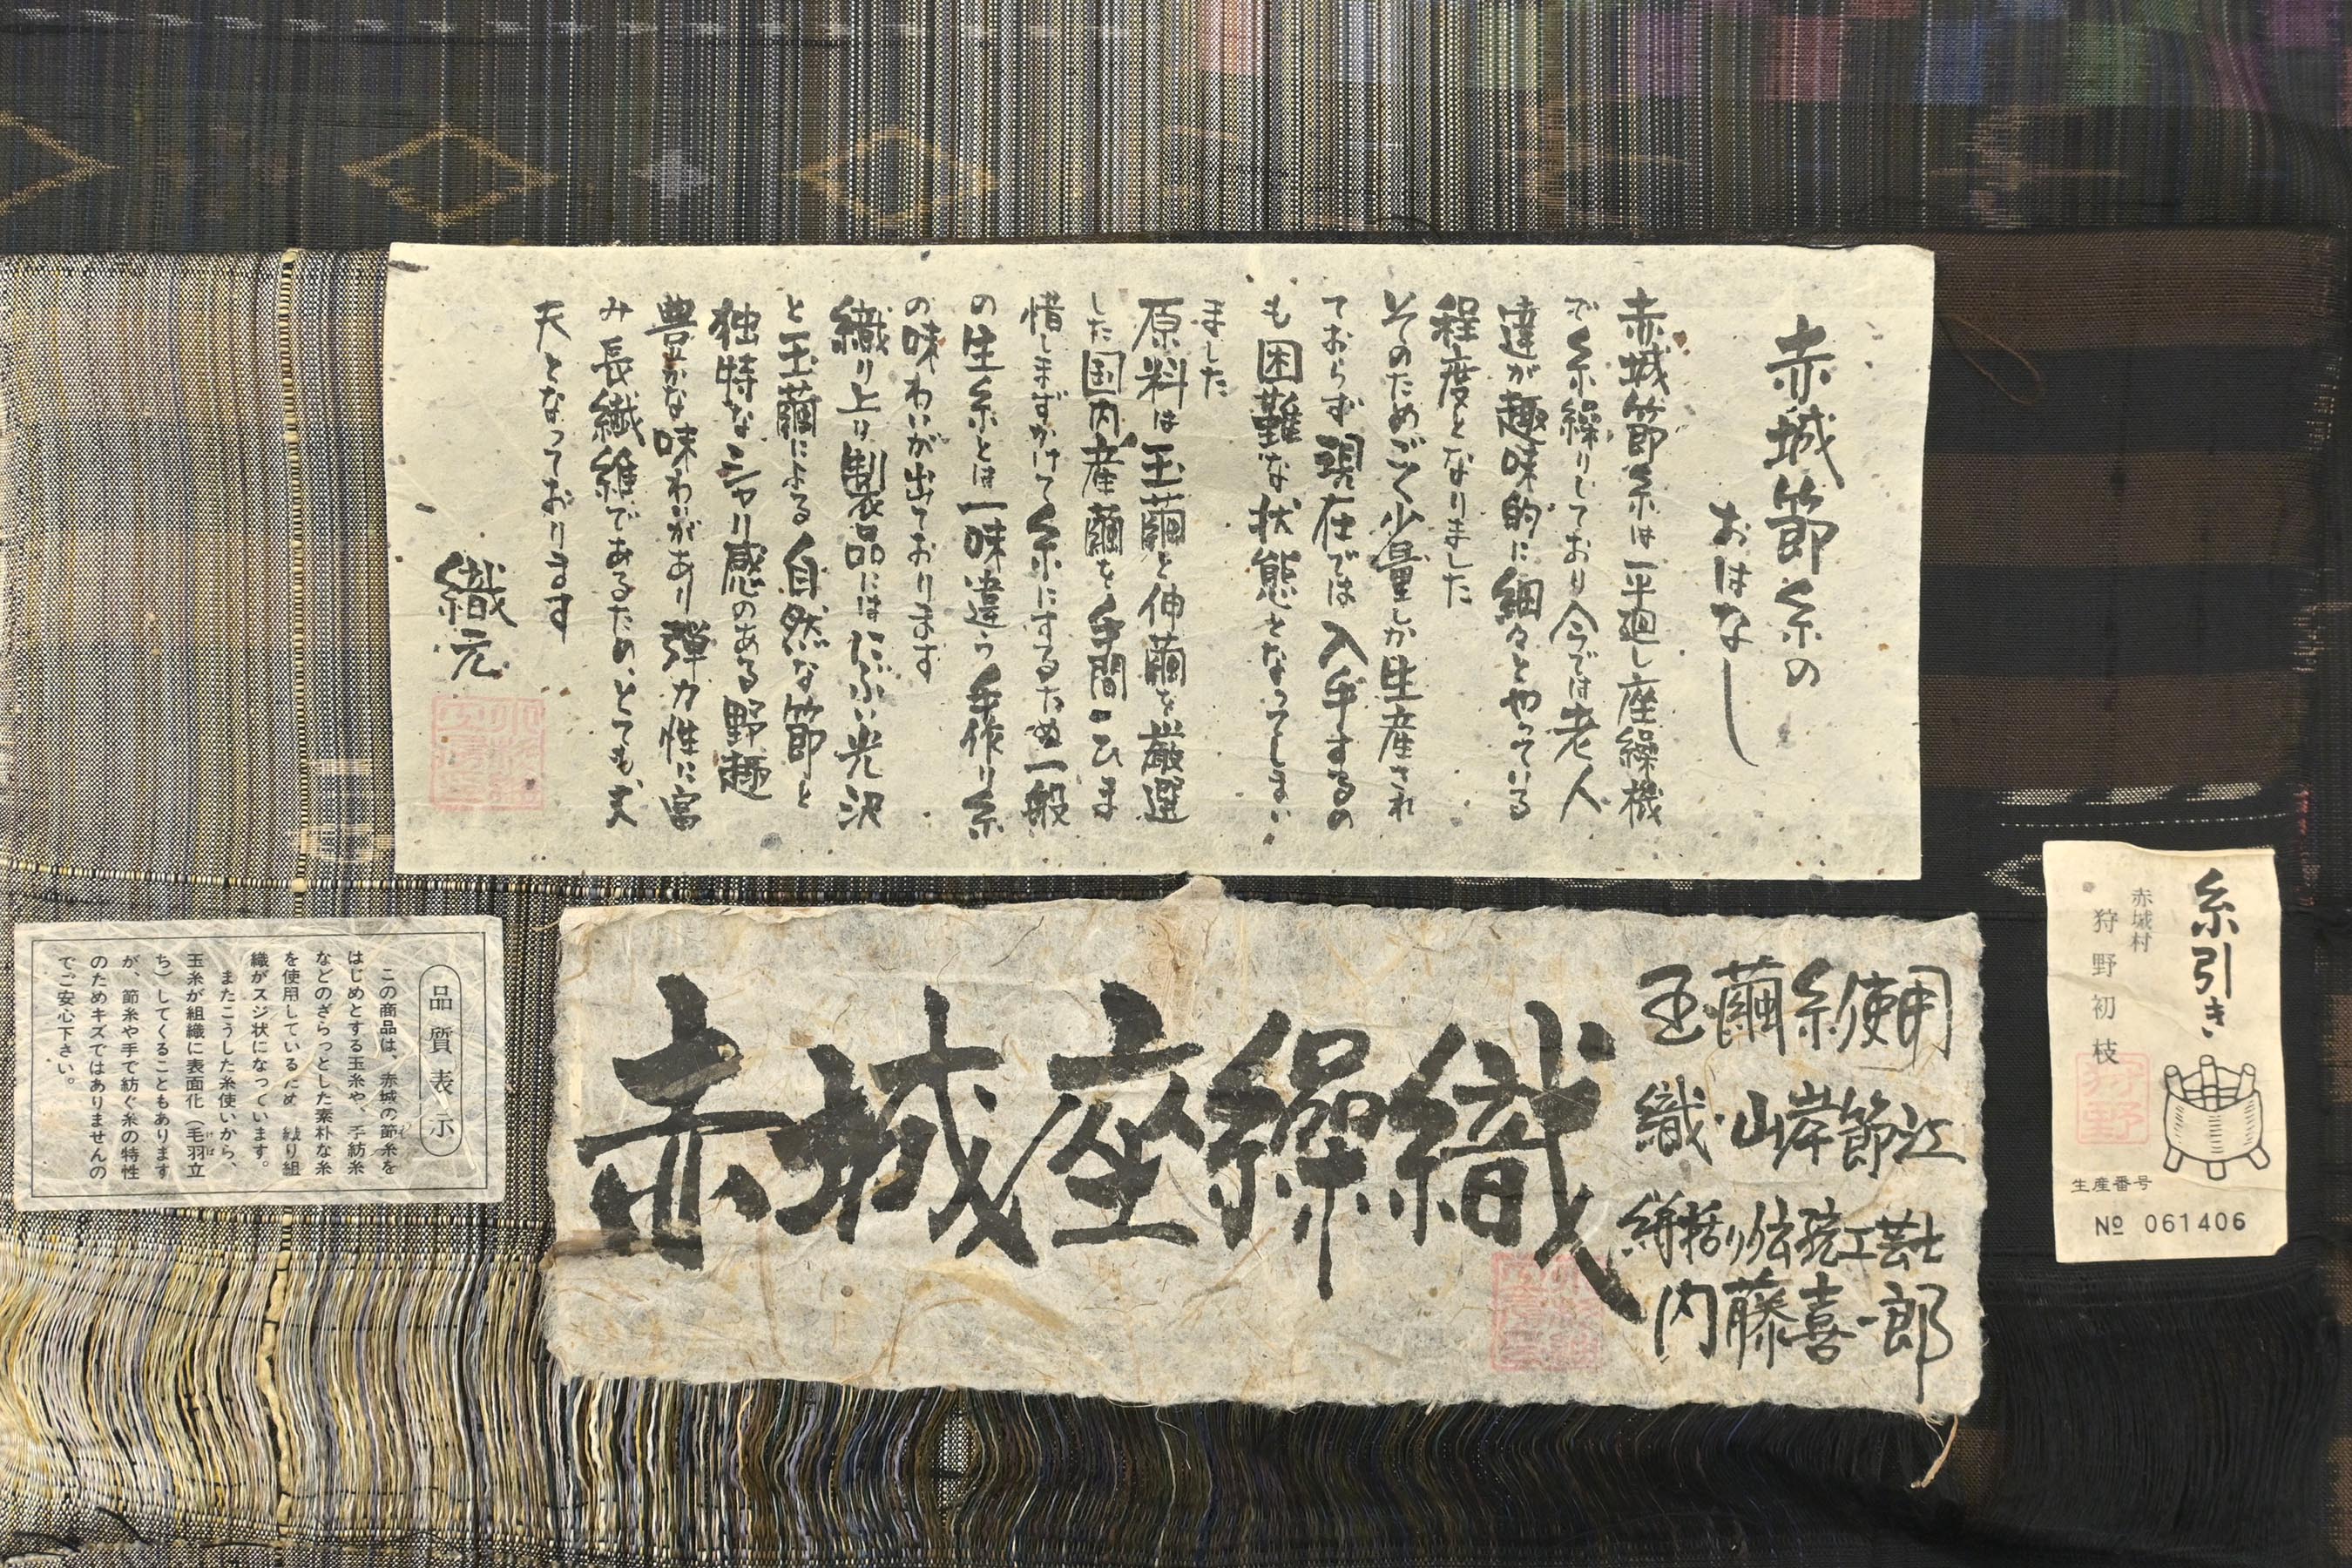 赤城節糸の
おはなし
赤城節糸は一平廻し座繰機
で糸繰りしており今では老人
達が趣味的に細々とやっている
程度となりました
そのためごく少量しか生産され
ておらず現在では入手するの
も困難な状態となってしまい
ました
原料は玉繭と伸繭を厳選
した国内産繭を手間ひま
惜しまずかけて糸にするため一般
の生糸とは一味違う手作り糸
の味わいが出ております
織り上り製品にはにぶい光沢
と玉繭による自然な節と
独特なシャリ感のある野趣
豊かな味わいがあり弾力性に富
み長繊維であるため、とても丈
夫となっております
織元
品質表示
この商品は、赤城の節糸を
はじめとする玉糸や、手紡糸
などのざらっとした素朴な糸
を使用しているため 織り組
織がスジ状になっています。
またこうした糸使いから、
玉糸が組織に表面化(毛羽立
ち)してくることもあります
が、節糸や手で紡ぐ糸の特性
のためキズではありませんの
でご安心下さい。
赤城座繰織
玉繭糸使用
織 山岸節江
絣括り伝統工芸士
内藤喜一郎
糸引き
赤城村
狩野初枝
狩野
生産番号
№ 061406